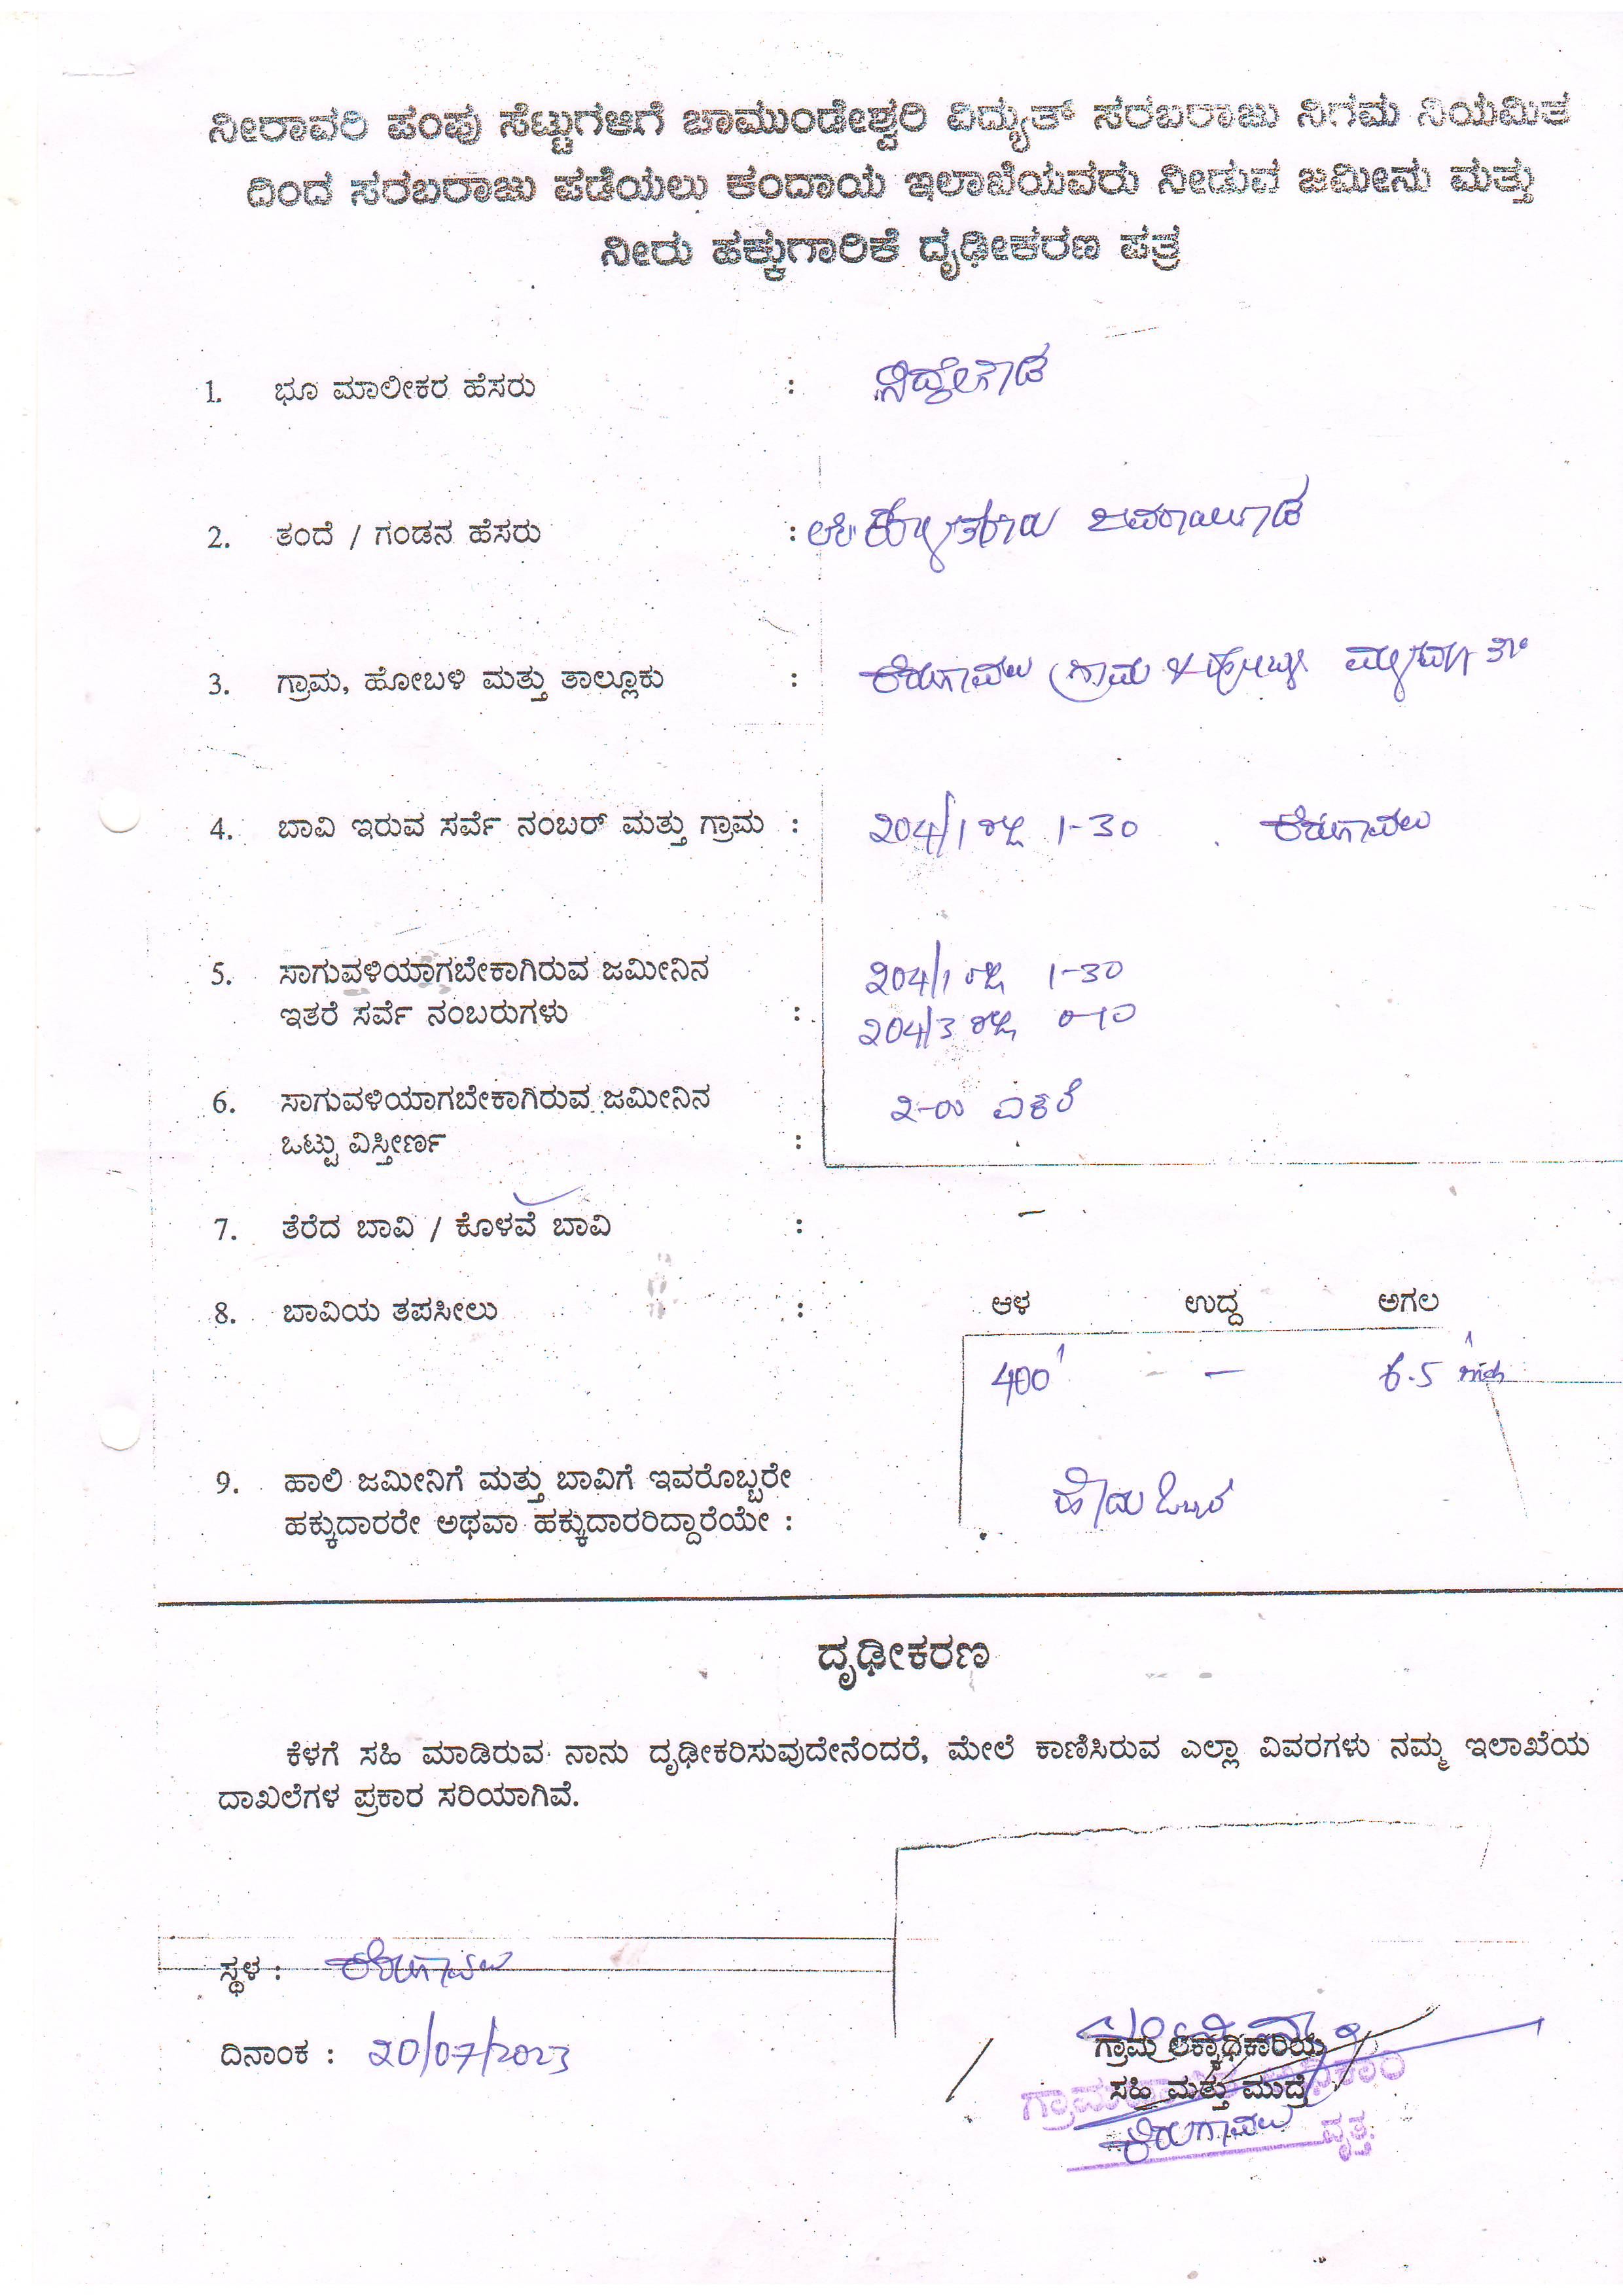 ನೀರಾವರಿ ಪಂಪು ಸೆಟ್ಟುಗಳಿಗೆ ಚಾಮುಂಡೇಶ್ವರಿ ವಿದ್ಯುತ್ ಸರಬರಾಜು ನಿಗಮ ನಿಯಮಿತ
ದಿಂದ ಸರಬರಾಜು ಪಡೆಯಲು ಕಂದಾಯ ಇಲಾಖೆಯವರು ನೀಡುವ ಜಮೀನು ಮತ್ತು
ನೀರು ಹಕ್ಕುಗಾರಿಕೆ ದೃಢೀಕರಣ ಪತ್ರ
1. ಭೂ ಮಾಲೀಕರ ಹೆಸರು : ಸಿದ್ದೇಗೌಡ
2. ತಂದೆ / ಗಂಡನ ಹೆಸರು :
3. ಗ್ರಾಮ, ಹೋಬಳಿ ಮತ್ತು ತಾಲ್ಲೂಕು : ಕಿರುಗಾವಲು ಗ್ರಾಮ & ಹೋಬಳಿ ಮಳವಳ್ಳಿ ತಾ॥
4. ಬಾವಿ ಇರುವ ಸರ್ವೆ ನಂಬರ್ ಮತ್ತು ಗ್ರಾಮ : 204/1 ರಲ್ಲಿ 1-30 ಕಿರುಗಾವಲು
5. ಸಾಗುವಳಿಯಾಗಬೇಕಾಗಿರುವ ಜಮೀನಿನ 204/1 ರಲ್ಲಿ 1-30
ಇತರೆ ಸರ್ವೆ ನಂಬರುಗಳು : 204/3 ರಲ್ಲಿ 0-10
6. ಸಾಗುವಳಿಯಾಗಬೇಕಾಗಿರುವ ಜಮೀನಿನ 2-00 ಎಕರೆ
ಒಟ್ಟು ವಿಸ್ತೀರ್ಣ :
7. ತೆರೆದ ಬಾವಿ / ಕೊಳವೆ ಬಾವಿ : –
8. ಬಾವಿಯ ತಪಸೀಲು : ಆಳ ಉದ್ದ ಅಗಲ
400' – 6.5 inch
9. ಹಾಲಿ ಜಮೀನಿಗೆ ಮತ್ತು ಬಾವಿಗೆ ಇವರೊಬ್ಬರೇ
ಹಕ್ಕುದಾರರೇ ಅಥವಾ ಹಕ್ಕುದಾರರಿದ್ದಾರೆಯೇ : ಹೌದು ಒಬ್ಬರೆ
ದೃಢೀಕರಣ
ಕೆಳಗೆ ಸಹಿ ಮಾಡಿರುವ ನಾನು ದೃಢೀಕರಿಸುವುದೇನೆಂದರೆ, ಮೇಲೆ ಕಾಣಿಸಿರುವ ಎಲ್ಲಾ ವಿವರಗಳು ನಮ್ಮ ಇಲಾಖೆಯ
ದಾಖಲೆಗಳ ಪ್ರಕಾರ ಸರಿಯಾಗಿವೆ.
ಸ್ಥಳ : ಕಿರುಗಾವಲು
ದಿನಾಂಕ : 20/07/2023
ಗ್ರಾಮ ಲೆಕ್ಕಾಧಿಕಾರಿಯ
ಸಹಿ ಮತ್ತು ಮುದ್ರೆ
ಕಿರುಗಾವಲು ವೃತ್ತ.